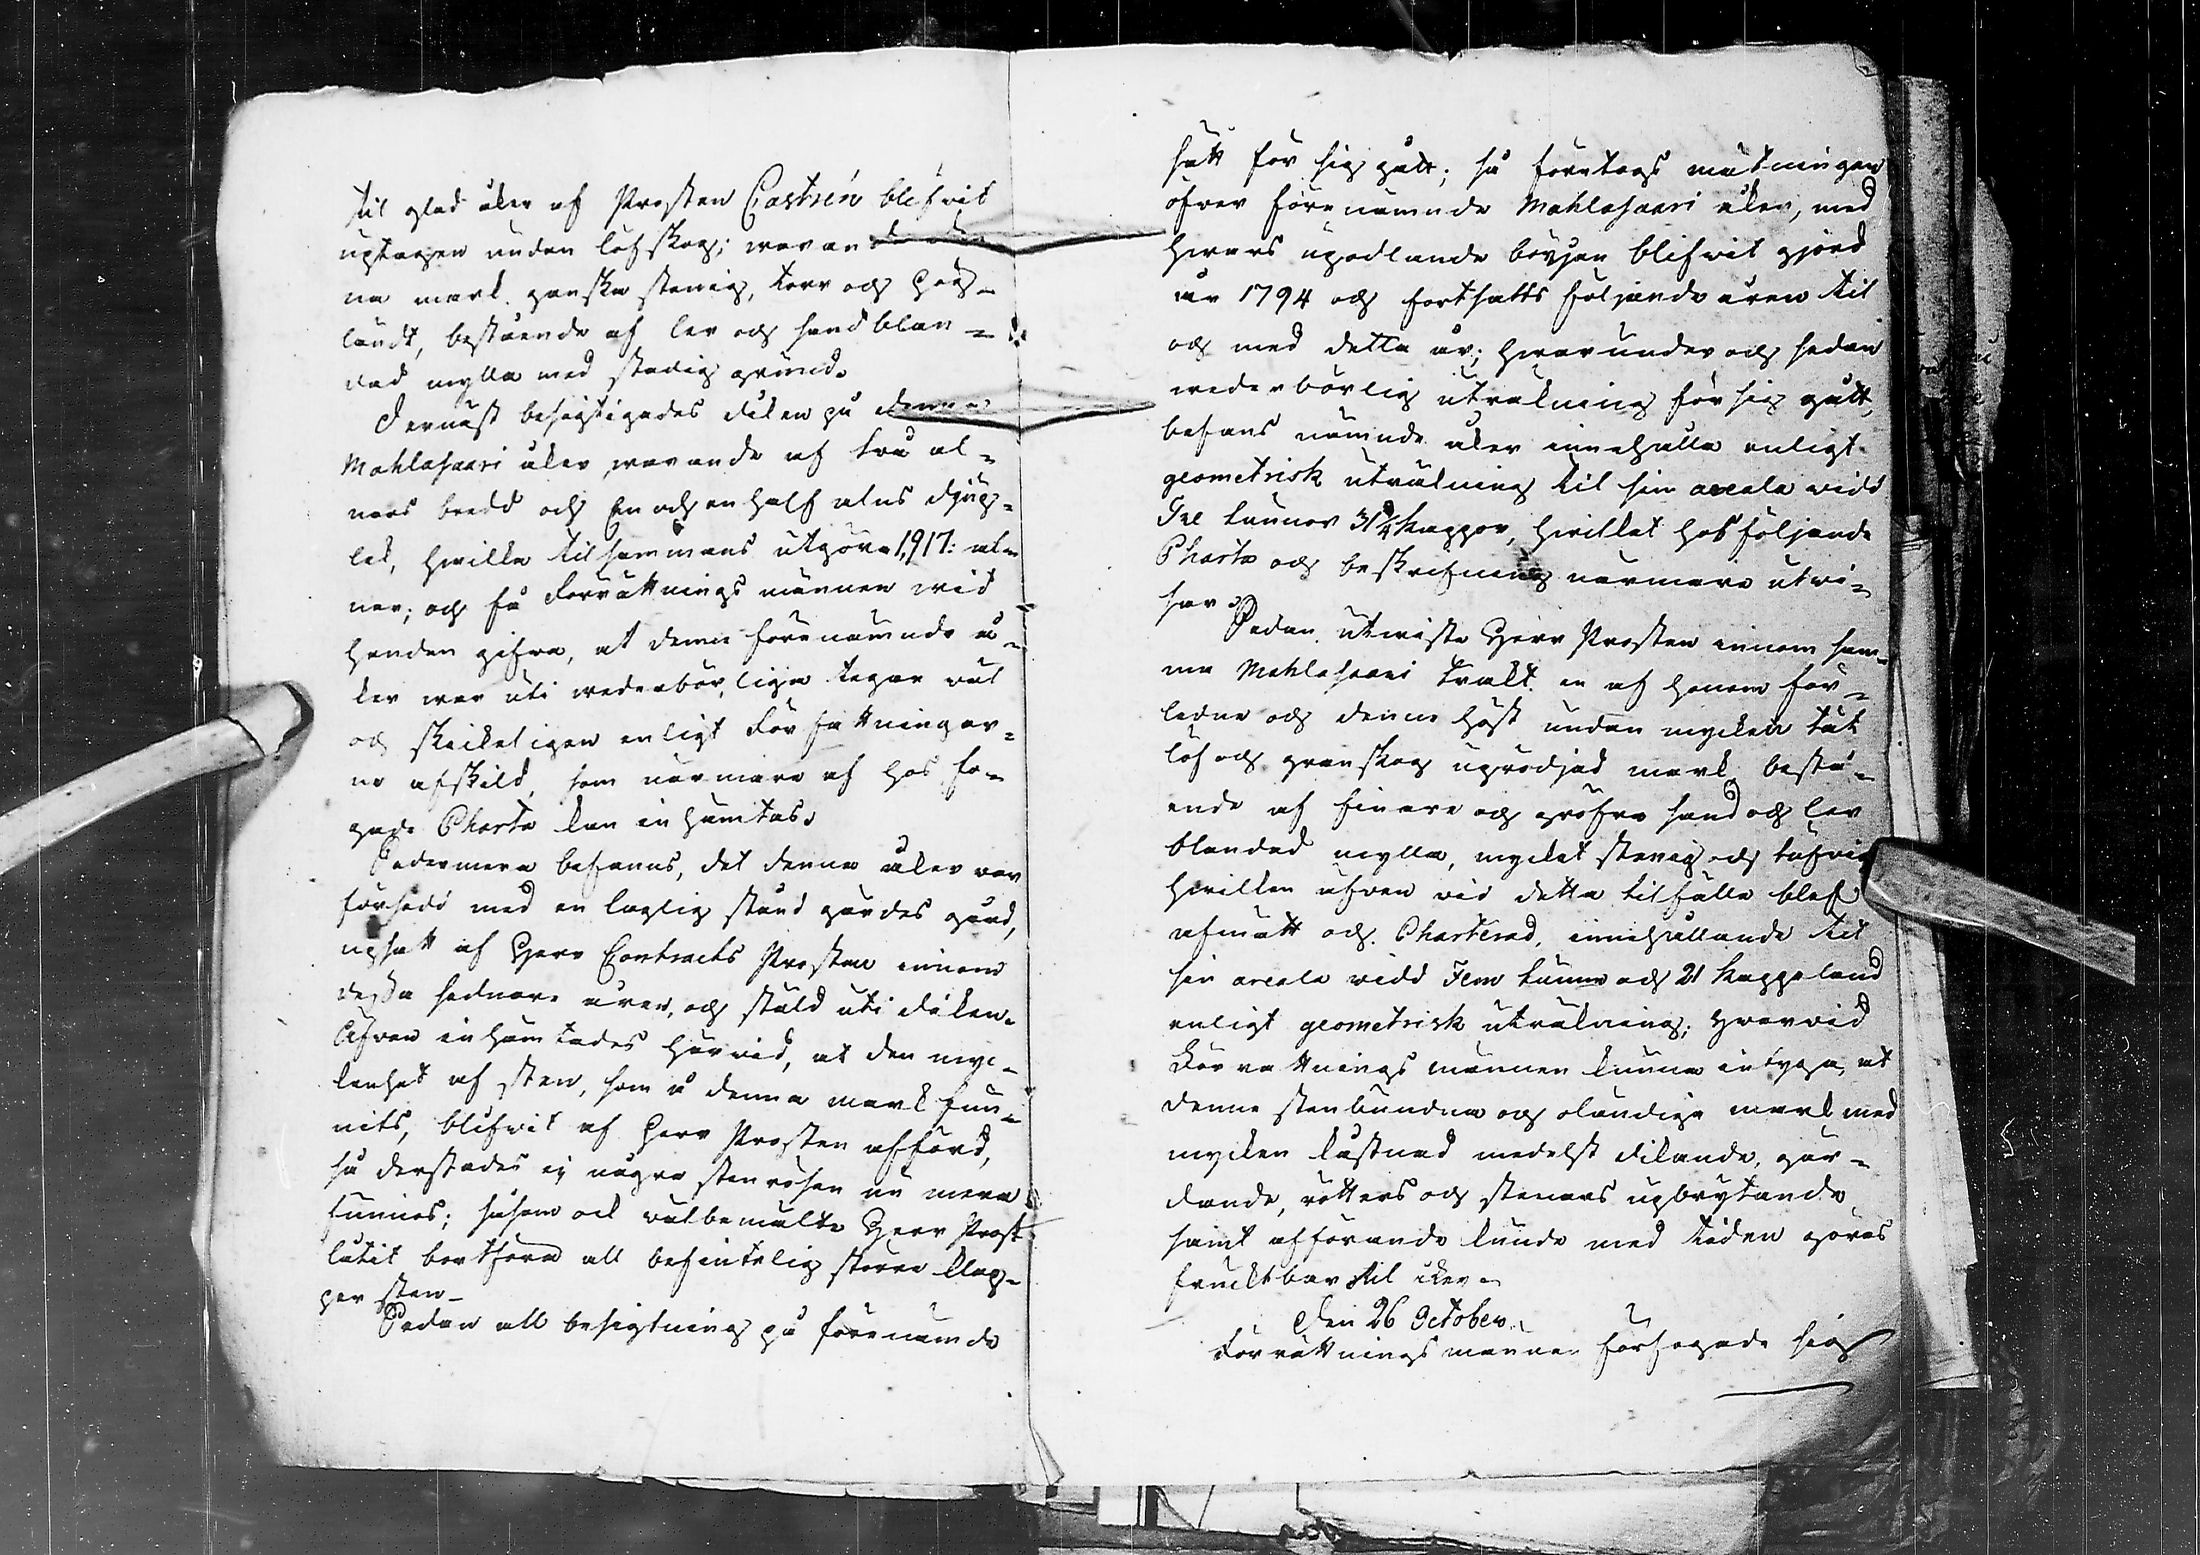 til glad åker af Prosten Castrén blifvit
uptagen undan löfskog; warande den-
na mark ganska stenig, torr och hög-
ländt, bestående af ler och sandblan-
dad mylla med stadig grund.
Dernäst besigtigades diken på denna
Mahlasaari åker warande af två al-
nars bredd och En och en half alns djup-
lek, hwilka tilsammans utgöra 1,917: al-
nar; och få Förrättnings männen wid
handen gifva, at denne förenämnde å-
ker war uti wederbörlige tegar väl
och skickeligen enligt Författningar-
ne afskild, som närmare af hos fo-
gade Charta kan inhämtas.
Vidermera befanns, det denna åker war
försedd med en laglig stånd gärdes gård,
upsatt af Herr Contracts Prosten innom
dessa sednare åren, och stäld uti diken.
Äfven inhämtades härvid, at den myc-
kenhet af sten, som å denna mark fun-
nits, blifvit af Herr Prosten afförd,
så derstädes ej några stenrösen nu mera
funnos; såsom ock välbemälte Herr Prost
låtit bortföra all befintelig större klap-
per sten.
Sedan all besigtning på förenämde
sätt för sig gått; så företogs mätningen
öfver förenämnde Mahlasaari åker, med
hwars upodlande början blifvit gjord
år 1794 och fortsatts följande åren til
och med detta år; hwarunder och sedan
wederbörlig uträkning för sig gått,
befans nämnde åker innehålla enligt
geometrisk uträkning til sin areala vidd
Tre tunnor 31 1/4 kappor, hwilket hos följande
Charta och beskrifning närmare utvi-
sar.
Sedan utwiste Herr Prosten innom sam-
ma Mahlasaari trakt en af honom för-
ledne och denne höst undan mycken tät
löf och granskog uprödjad mark bestå-
ende af finare och gröfre sand och ler
blandad mylla, mycket stenig och tufvig
hwilken äfven vid detta tilfälle blef
afmätt och Charterad, innehållande til
sin areala widd Fem tunne och 21 kappeland
enligt geometrisk uträkning; hwarvid
Förrättnings männen kunna intyga, at
denne stenbundna och oländige mark med
mycken kostnad medelst dikande, gär-
dande, rötters och stenars upbrytande
samt afförande kunde med tiden göras
fruktbar til åker.
Den 26 October
Förrättnings männen förfogade sig